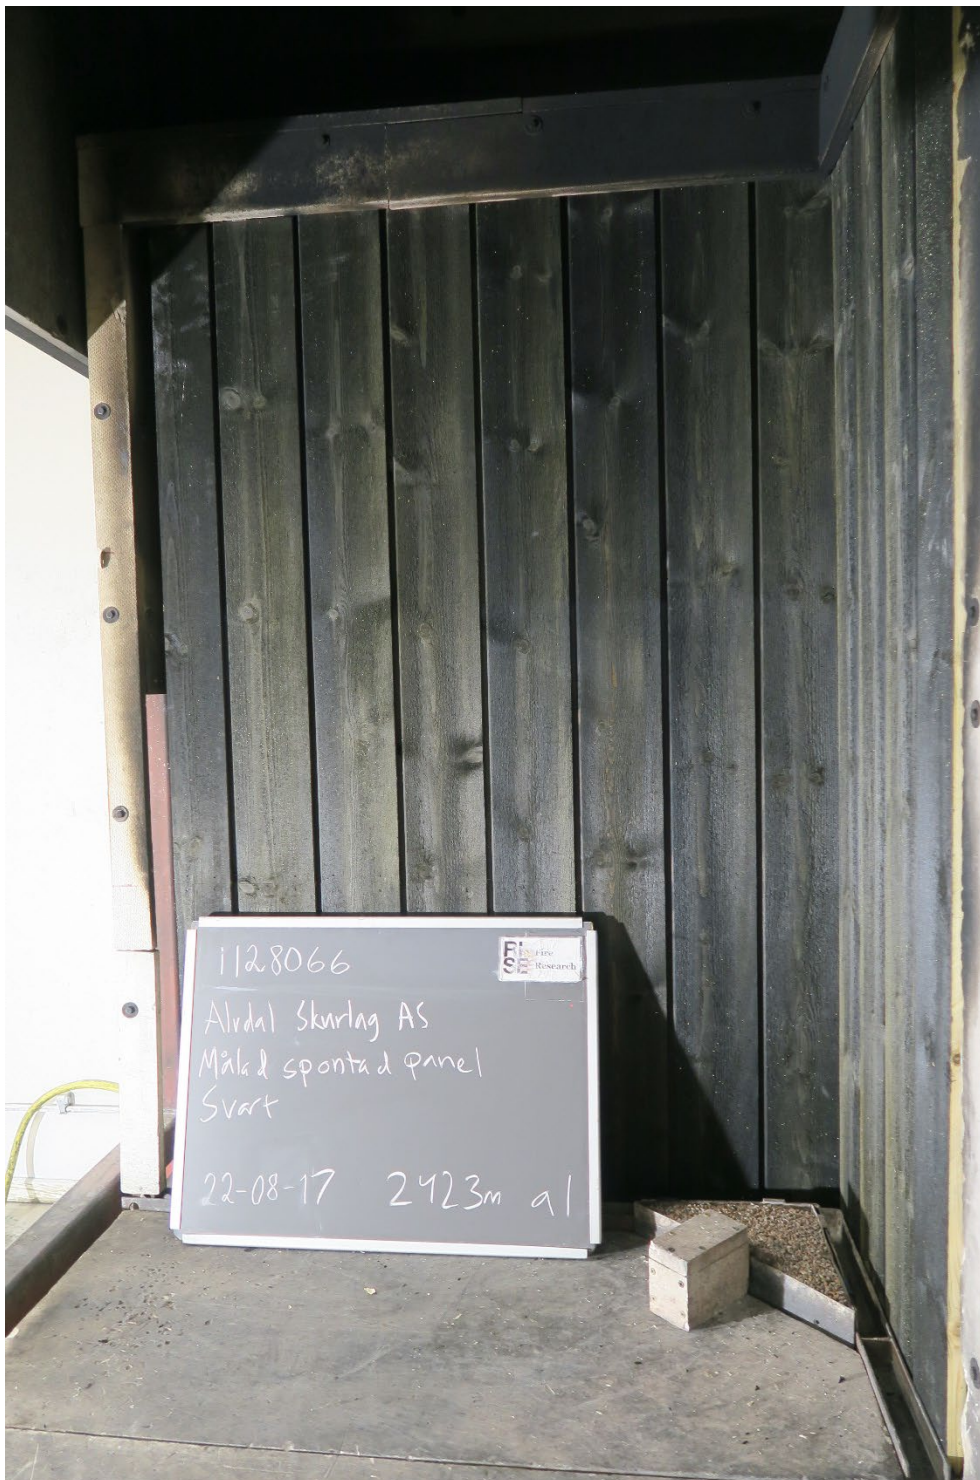 1128066
RI
SE
Fire
Research
Alvdal Skurlag AS
Målad spontad panel
Svart
22-08-17 2423m a1